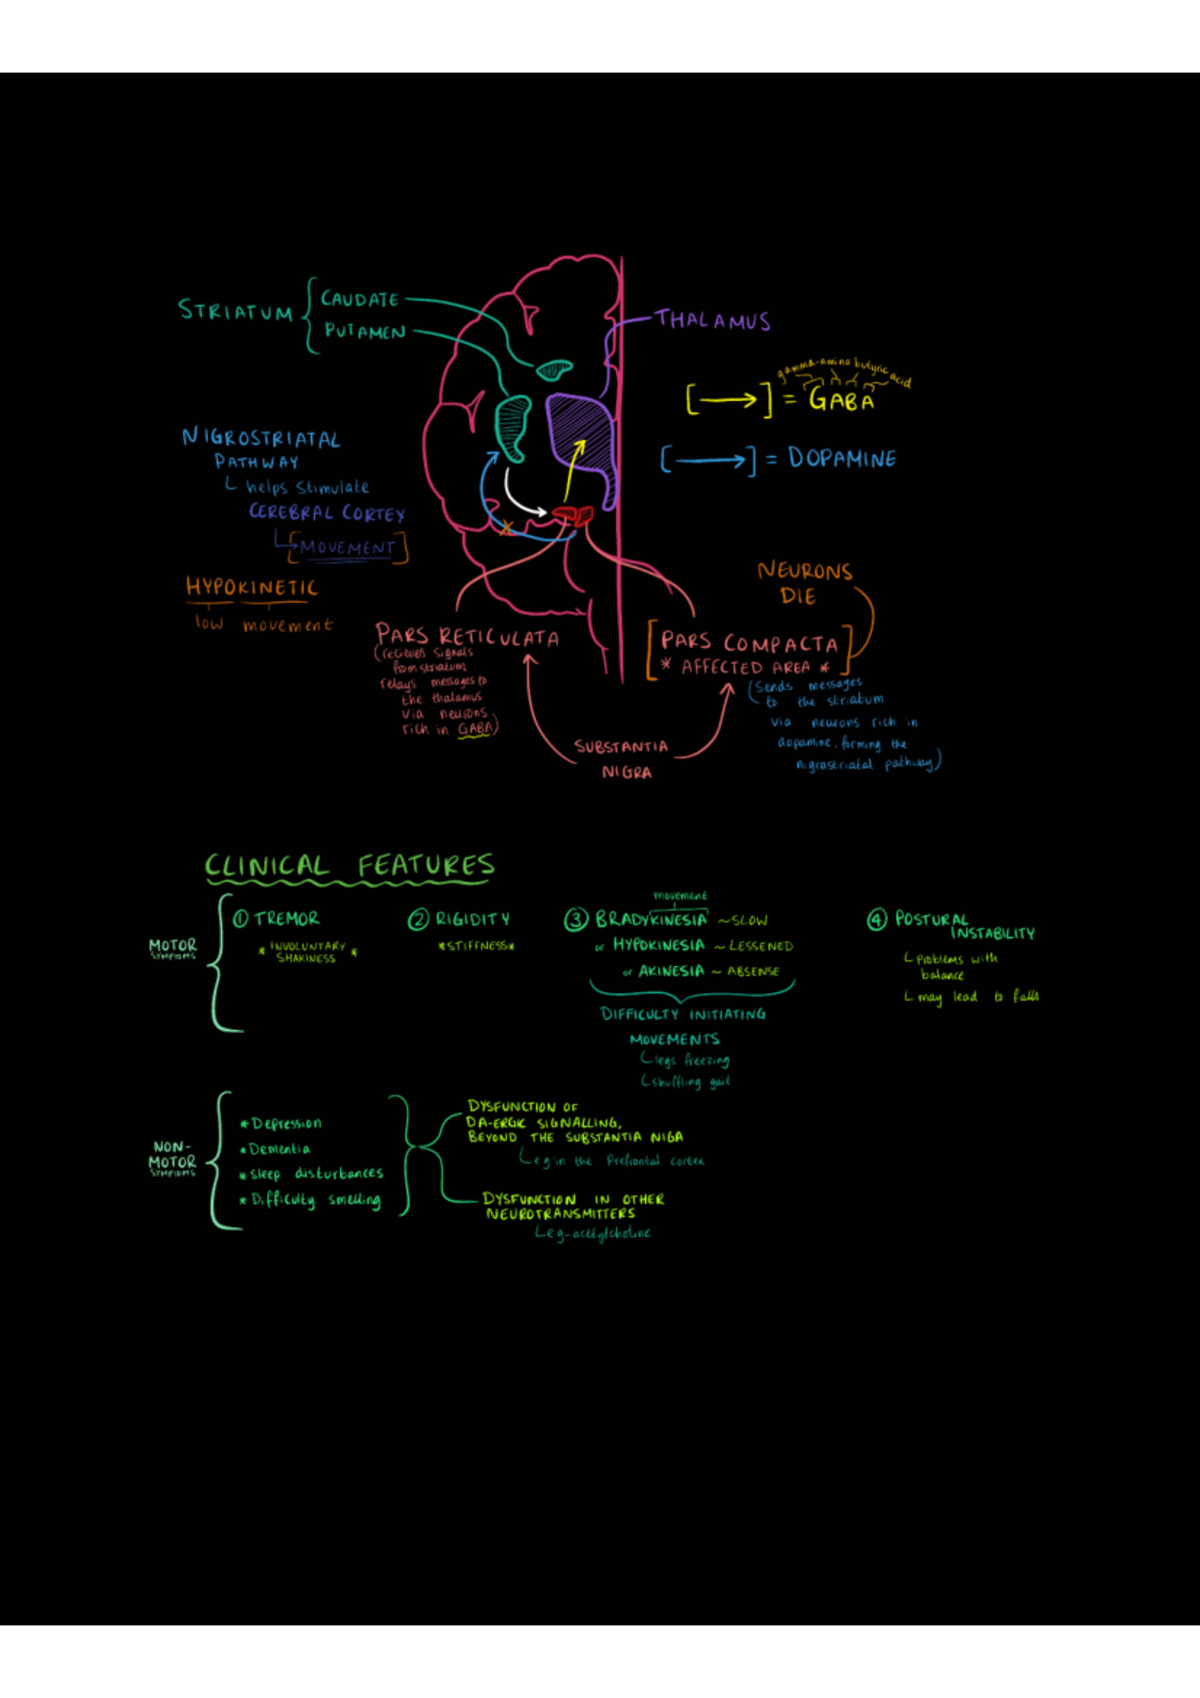 STRIATUM
CAUDATE
PUTAMEN
THALAMUS
gamma-amino butyric acid
[ → ] = GABA
[ → ] = DOPAMINE
NIGROSTRIATAL
PATHWAY
helps stimulate
CEREBRAL CORTEX
[MOVEMENT]
HYPOKINETIC
low movement
NEURONS
DIE
PARS RETICULATA
(recieves signals
from striatum
relays messages to
the thalamus
via neurons
rich in GABA)
[PARS COMPACTA
* AFFECTED AREA *]
(Sends messages
to the striatum
via neurons rich in
dopamine, forming the
nigrastriatal pathway)
SUBSTANTIA
NIGRA
CLINICAL FEATURES
MOTOR
SYMPTOMS
① TREMOR
* INVOLUNTARY
SHAKINESS *
② RIGIDITY
*STIFFNESS*
movement
③ BRADYKINESIA ~SLOW
or HYPOKINESIA ~ LESSENED
or AKINESIA ~ ABSENSE
DIFFICULTY INITIATING
MOVEMENTS
legs freezing
shuffling gait
④ POSTURAL
INSTABILITY
Problems with
balance
may lead to falls
NON-
MOTOR
SYMPTOMS
* Depression
* Dementia
* Sleep disturbances
* Difficulty smelling
DYSFUNCTION OF
DA-ERGIC SIGNALLING,
BEYOND THE SUBSTANTIA NIGA
eg in the Prefrontal cortex
DYSFUNCTION IN OTHER
NEUROTRANSMITTERS
eg-acetylcholine